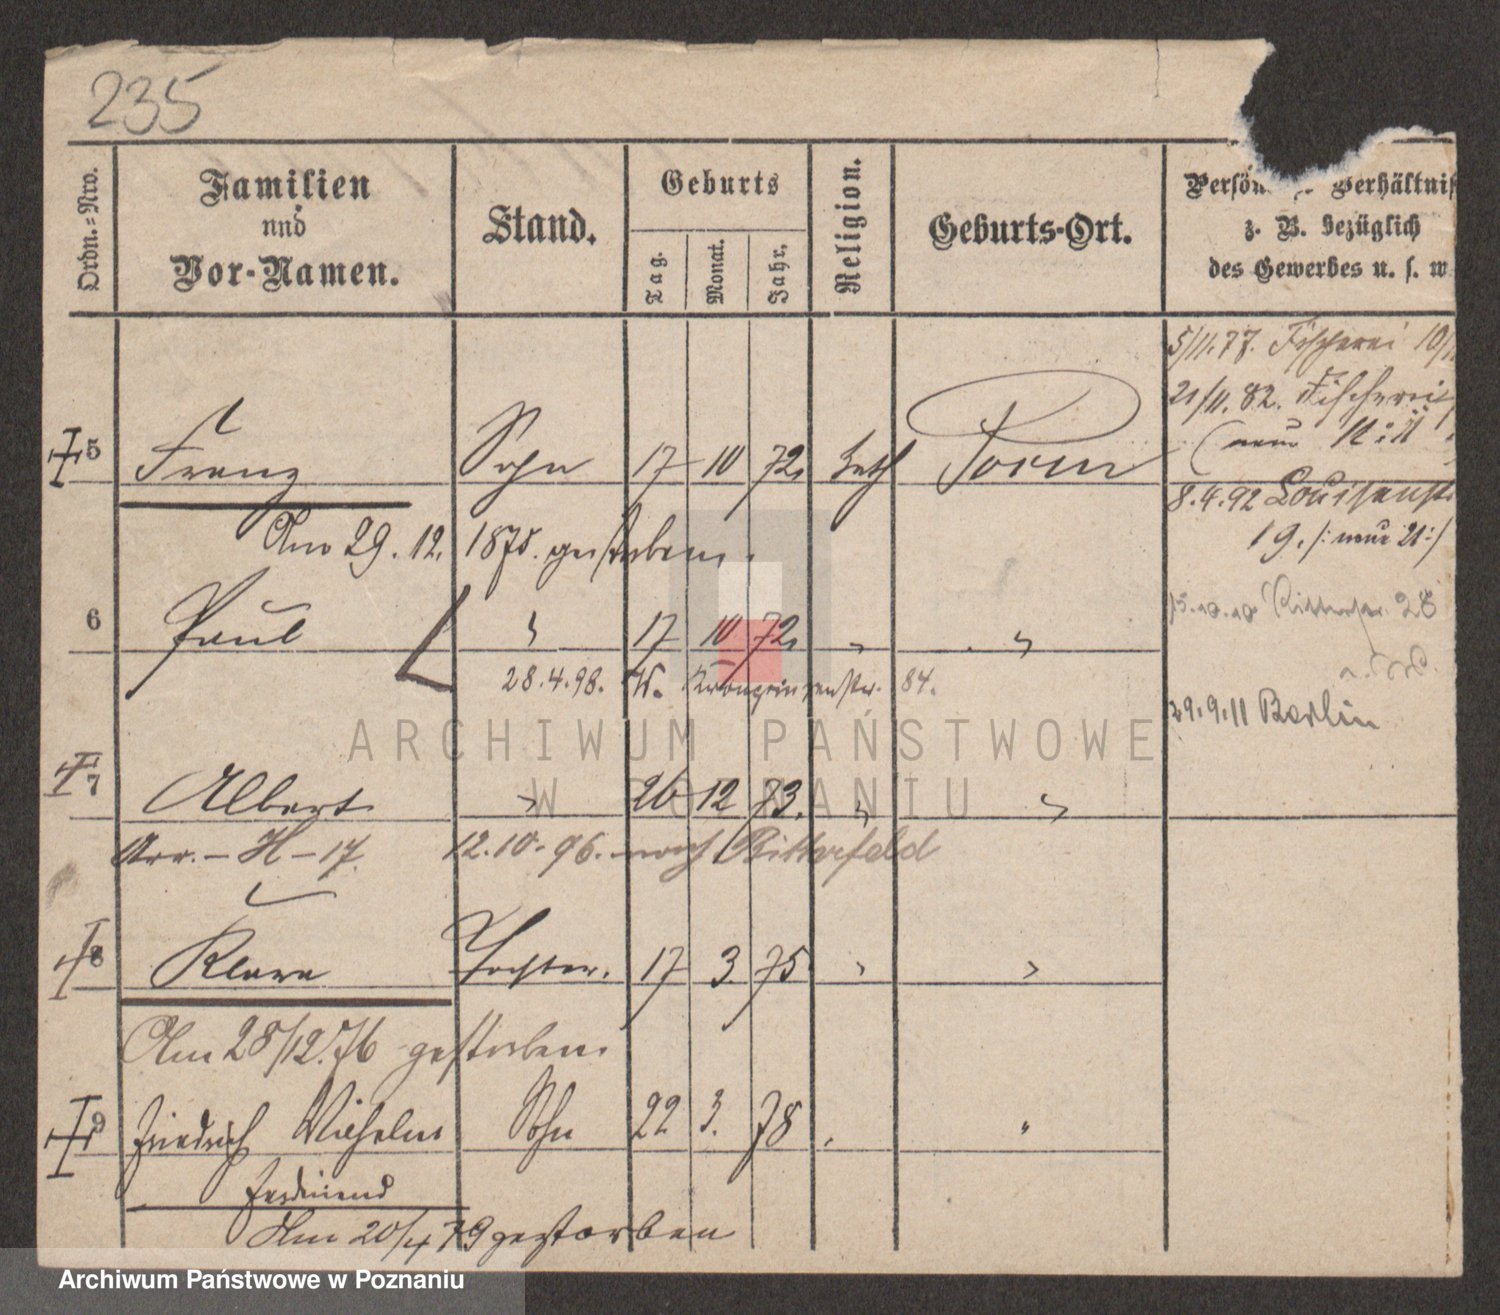 235
Ordn.=Nro.
Familien
und
Vor-Namen.
Stand.
Geburts
Tag.
Monat.
Jahr.
Religion.
Geburts-Ort.
Verhältnis
z. B. bezüglich
des Gewerbes u. s. w
5/11.77. Fischerei 10/
21/11. 82. Fischerei
(neue
5 Franz Sohn 17 10 72 kath Posen
8.4.92 Louisenstr.
19. /: neue 21 :/
Am 29. 12. 1875. gestorben.
6 Paul " 17 10 72 " "
Ritterstr. 28
28.4.98. W. Kronprinzenstr. 84.
29.9.11 Berlin
7 Albert " 26 12 73. " "
Arr. - H - 17. 12.10.96. nach Bitterfeld
8 Klara Tochter. 17 3. 75 " "
Am 28/12.76 gestorben.
9 Friedrich Wilhelm Sohn 22 3. 78 " "
Ferdinand
Am 20/4 79 gestorben
ARCHIWUM PAŃSTWOWE
W POZNANIU
Archiwum Państwowe w Poznaniu